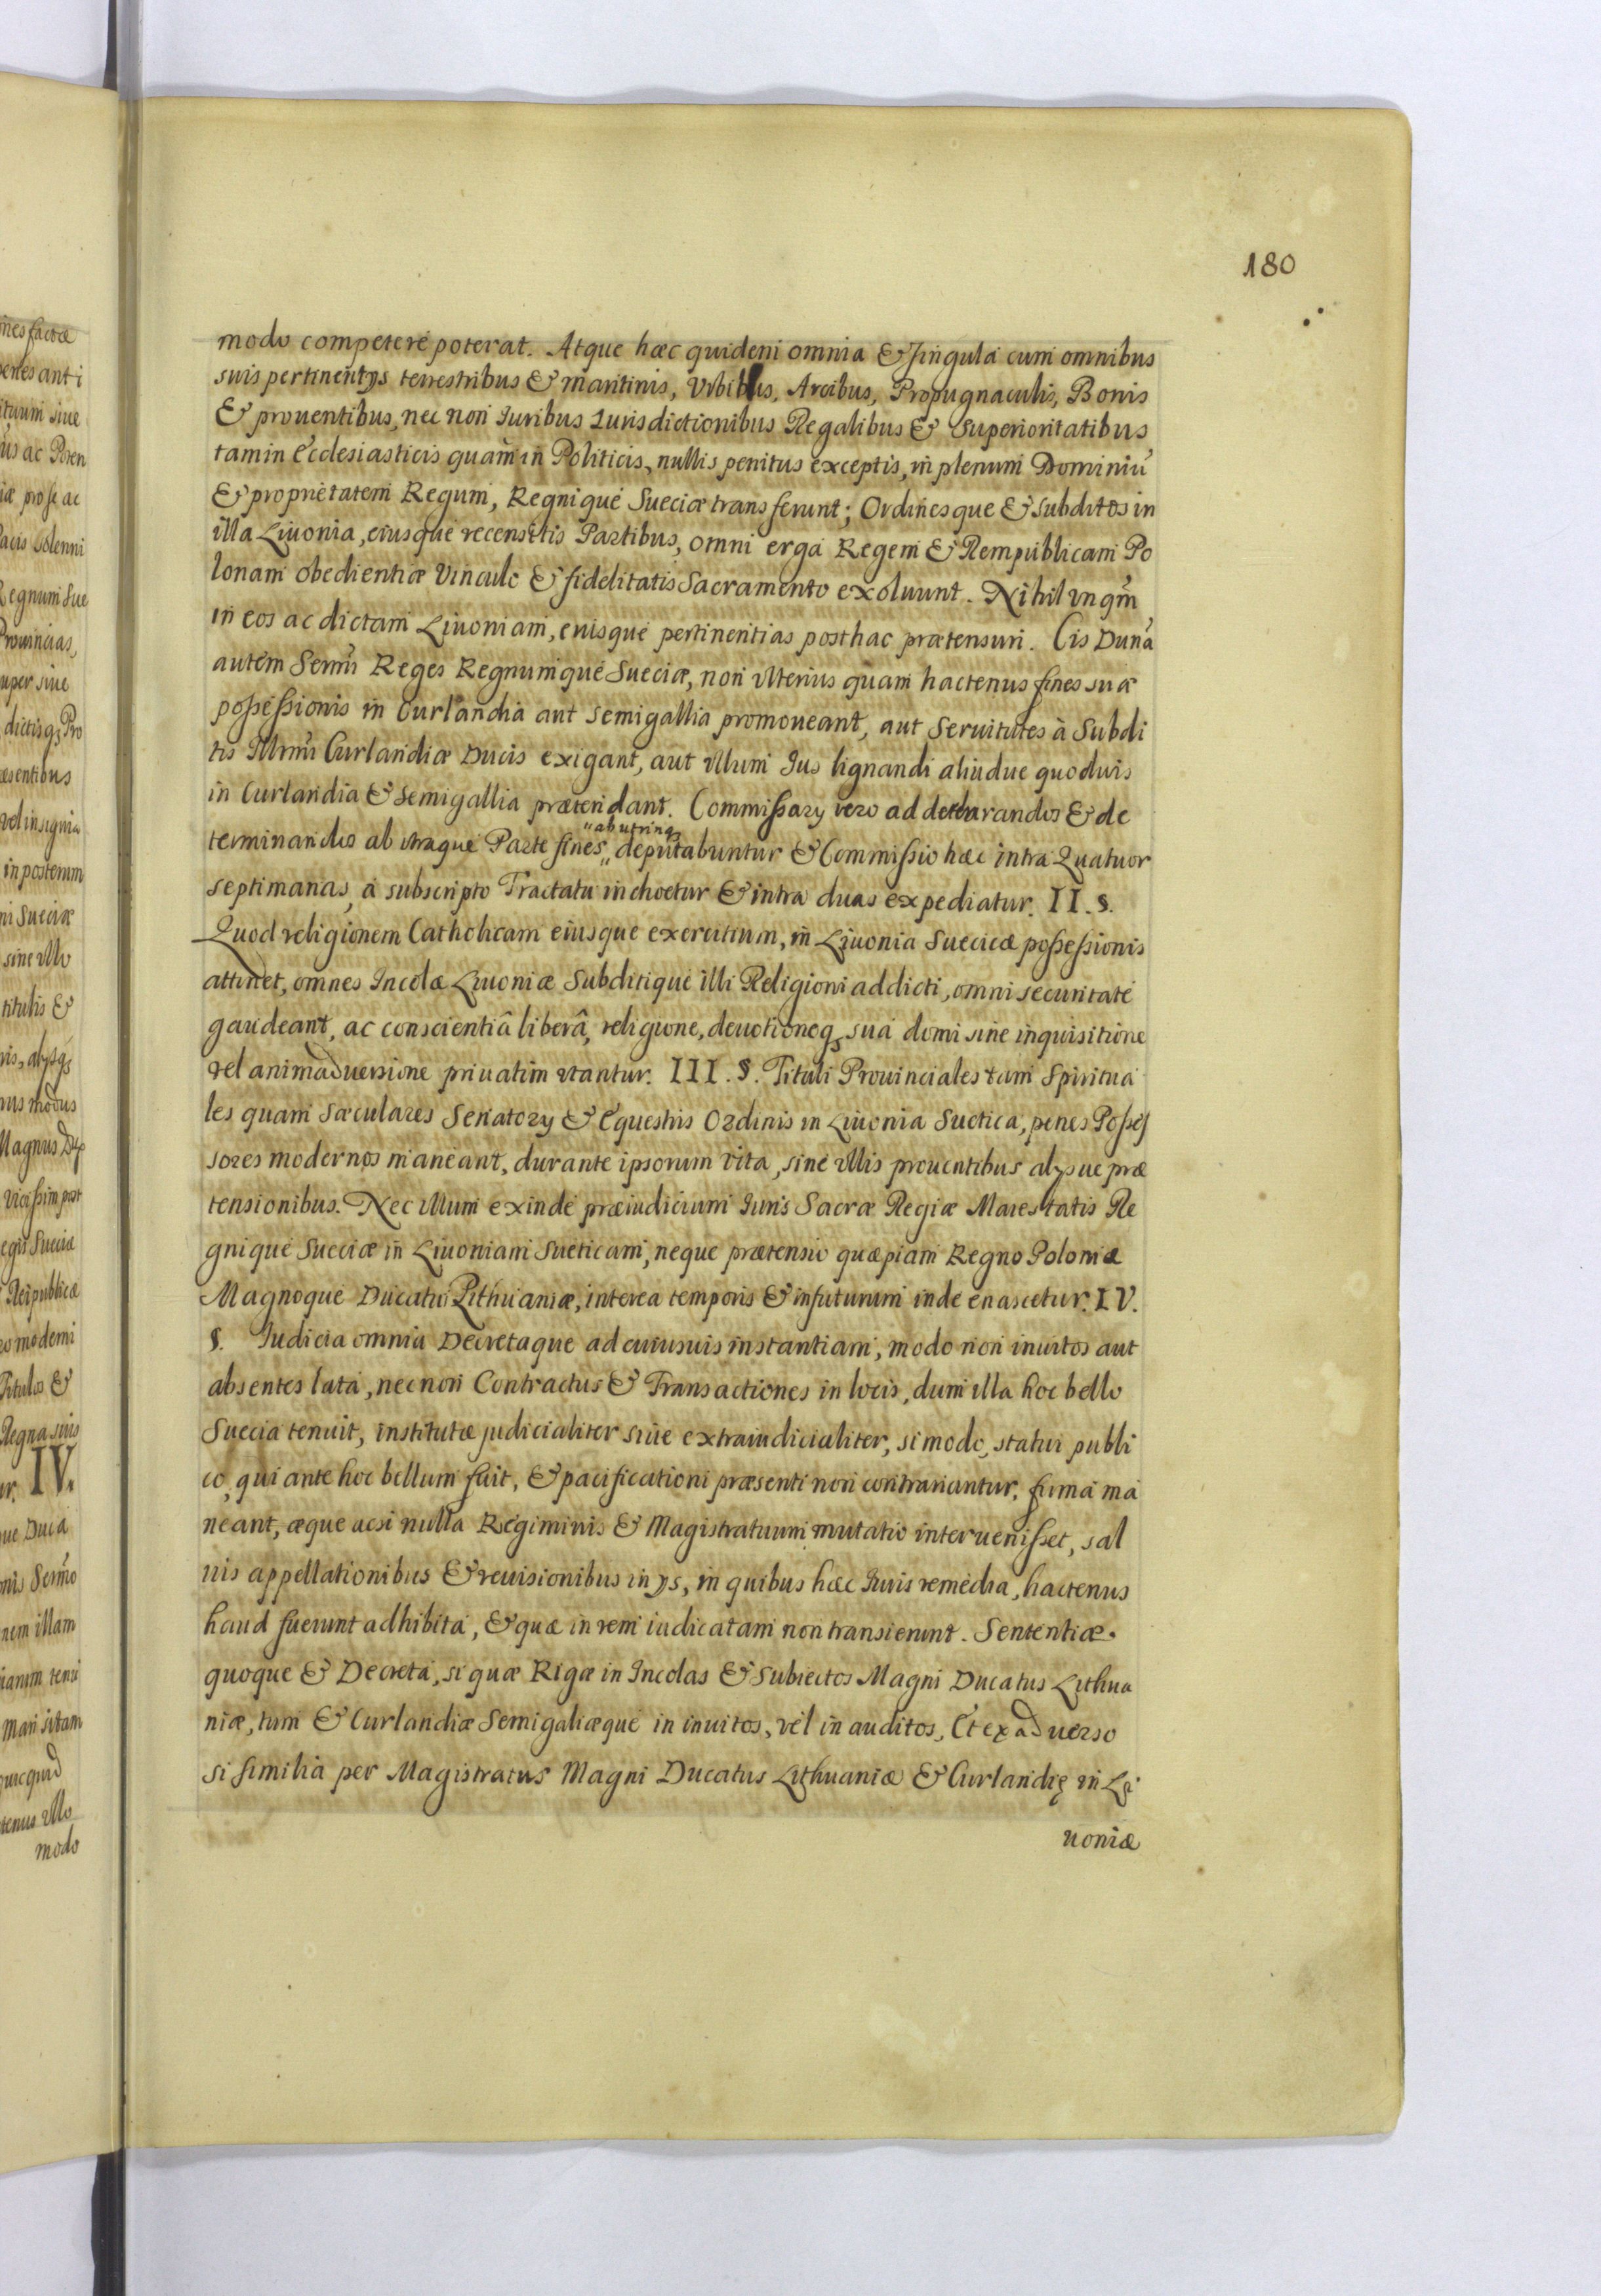 180
modo competere poterat. Atque hæc quidem omnia & singula cum omnibus
suis pertinentijs terrestribus & maritinis, Vrbibus, Arcibus, Propugnaculis, Bonis
& prouentibus, nec non Iuribus Iurisdictionibus Regalibus & Superioritatibus
tam in Ecclesiasticis quàm in Politicis, nullis penitus exceptis, in plenum Dominiũ
& proprietatem Regum, Regnique Sueciæ transferunt; Ordinesque & subditos in
illa Liuonia, eiusque recensitis Partibus, omni erga Regem & Rempublicam Po
lonam obedientiæ Vinculo & fidelitatis Sacramento exoluunt. Nihil vnqm̃
in eos ac dictam Liuoniam, euisque pertinentias posthac prætensuri. Cis Dunã
autem Sermĩ Reges Regnumque Sueciæ, non vlterius quam hactenus fines suæ
possessionis in Curlandia aut Semigallia promoueant, aut Seruitutes à Subdi
tis Illrmĩ Curlandiæ Ducis exigant, aut vllum Ius lignandi aliudue quoduis
in Curlandia & Semigallia prætendant. Commissarij vero ad declarandos & de
"ab utrinqȝ
terminandos ab vtraque Parte fines „ deputabuntur & Commissio hæc intra Quatuor
septimanas, à subscripto Tractatu inchoetur & intra duas expediatur. II. §.
Quod religionem Catholicam eiusque exercitium, in Liuonia Suecicæ possessionis
attinet, omnes Incolæ Liuoniæ Subditique illi Religioni addicti, omni securitate
gaudeant, ac conscientiâ liberâ, religione, deuotioneqȝ sua domi sine inquisitione
vel animaduersione priuatim vtantur. III. §. Tituli Prouinciales tam Spiritua
les quam Sæculares Senatorij & Equestris Ordinis in Liuonia Suetica, penes Posses
sores modernos maneant, durante ipsorum vita, sine vllis prouentibus alijsue præ
tensionibus. Nec vllum exinde præiudicium Iuris Sacræ Regiæ Maiestatis Re
gnique Sueciæ in Liuoniam Sueticam, neque prætensio quæpiam Regno Poloniæ
Magnoque Ducatui Lithuaniæ, interea temporis & in futurum inde enascetur. IV.
§. Iudicia omnia Decretaque ad cuiusuis instantiam, modo non inuitos aut
absentes lata, nec non Contractus & Transactiones in locis, dum illa hoc bello
Suecia tenuit, institutæ judicialiter siue extraiudicialiter, si modo, statui publi
co, qui ante hoc bellum fuit, & pacificationi præsenti non contrariantur, firma ma
neant, æque acsi nulla Regiminis & Magistratuum mutatio interuenisset, sal
uis appellationibus & reuisionibus in ijs, in quibus hæc Iuris remedia, hactenus
haud fuerunt adhibita, & quæ in rem iudicatam non transierunt. Sententiæ
quoque & Decreta, si quæ Rigæ in Incolas & Subiectos Magni Ducatus Lithua
niæ, tum & Curlandiæ Semigaliæque in inuitos, vel in auditos, Et ex aduerso
si similia per Magistratus Magni Ducatus Lithuaniæ & Curlandię in Li
uoniæ